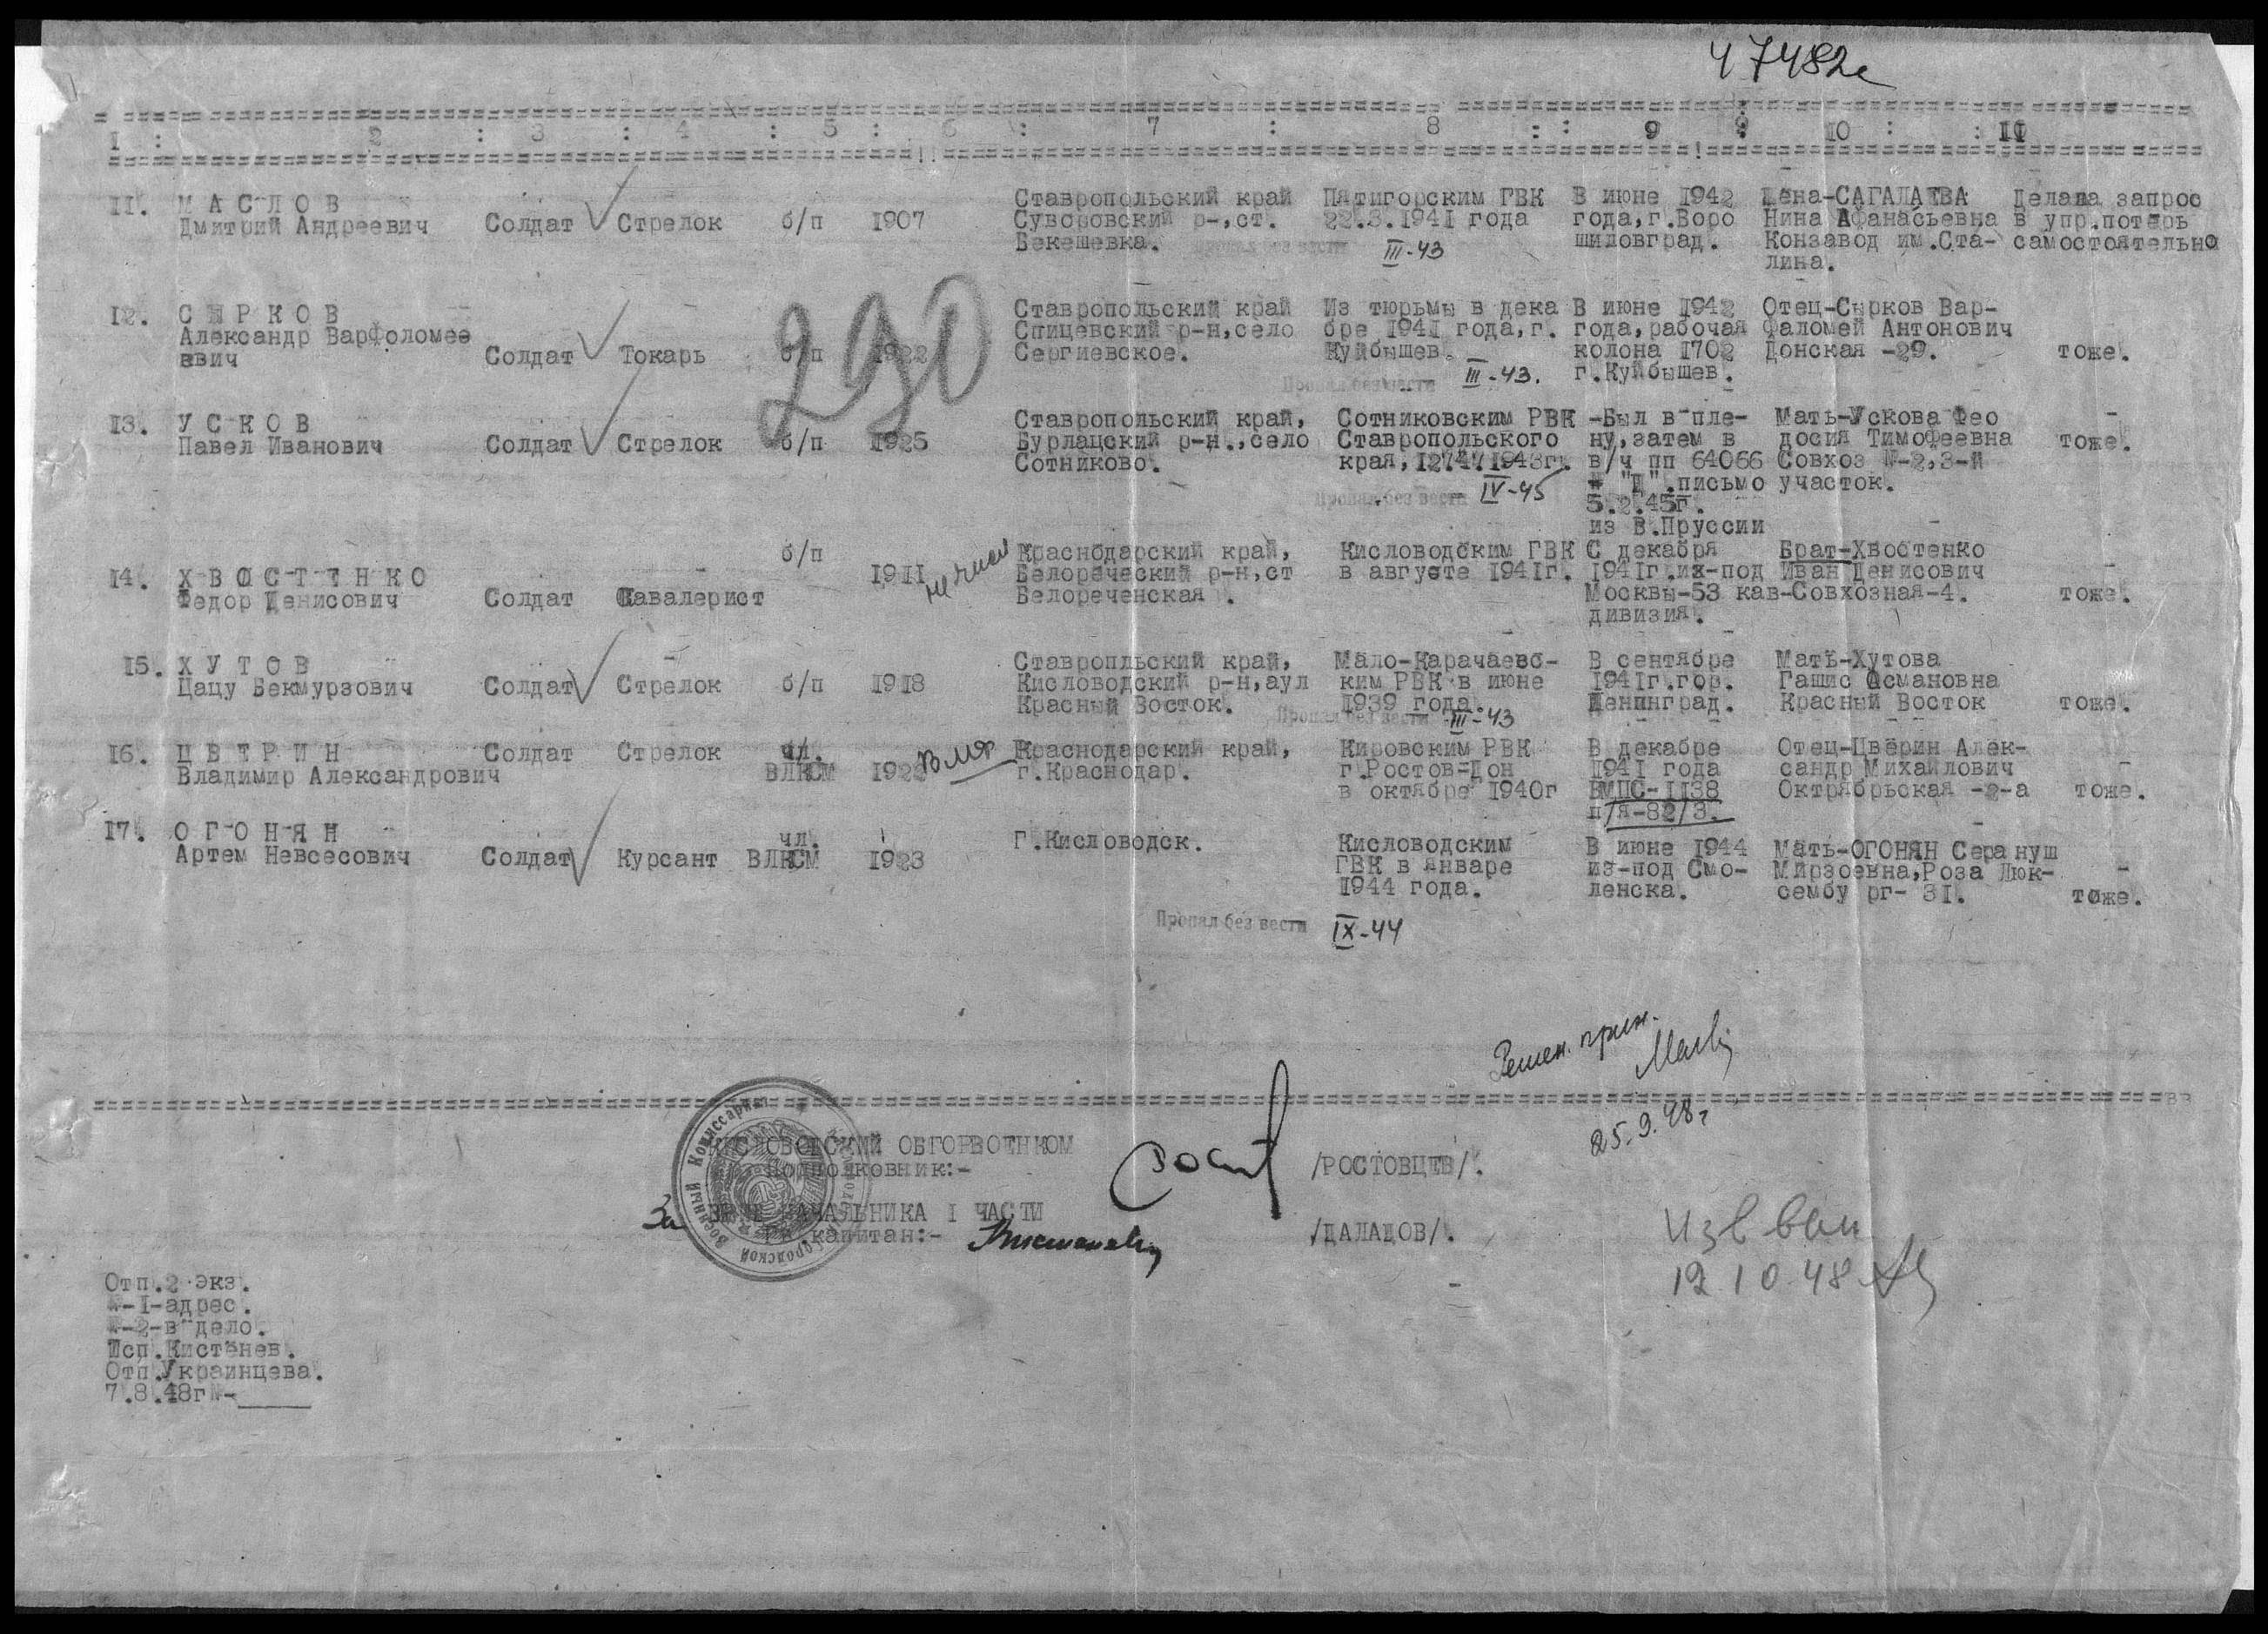 47482с
1 : 2 : 3 : 4 : 5 : 6 : 7 : 8 : : 9 : 10 : : 11
11. МАСЛОВ
Дмитрий Андреевич Солдат Стрелок б/п 1907
Ставропольский край
Суворовский р-,ст.
Бекешевка.
Пятигорским ГВК
22.3.1941 года
Пропал без вести III-43
В июне 1942
года,г.Воро
шиловград.
Жена-САГАЛАЕВА
Нина Афанасьевна
Конзавод им.Ста-
лина.
Делала запрос
в упр.потерь
самостоятельно
12. СЫРКОВ
Александр Варфоломее
евич Солдат Токарь б/п 1922
290
Ставропольский край
Спицевский р-н,село
Сергиевское.
Из тюрьмы в дека
бре 1941 года,г.
Куйбышев.
Пропал без вести III-43.
В июне 1942
года,рабочая
колона 1702
г.Куйбышев.
Отец-Сырков Вар-
фаломей Антонович
Донская -29.
тоже.
13. УСКОВ
Павел Иванович Солдат Стрелок б/п 1925
Ставропольский край,
Бурлацский р-н.,село
Сотниково.
Сотниковским РВК
Ставропольского
края,12/4/1943г.
Пропал без вести IV-45
-Был в пле-
ну,затем в
в/ч пп 64066
"Д".письмо
5.2.45г.
из В.Пруссии
Мать-Ускова Фео
досия Тимофеевна
Совхоз №-2,3-й
участок.
тоже.
14. ХВОСТЕНКО
Федор Денисович Солдат Кавалерист б/п 1911
не числ
Краснодарский край,
Белореческий р-н,ст
Белореченская .
Кисловодским ГВК
в августе 1941г.
С декабря
1941г.их-под
Москвы-53 кав-
дивизия.
Брат-Хвостенко
Иван Денисович
Совхозная-4.
тоже.
15. ХУТОВ
Цацу Бекмурзович Солдат Стрелок б/п 1918
Ставропльский край,
Кисловодский р-н,аул
Красный Восток.
Мало-Карачаевс-
ким РВК в июне
1939 года.
Пропал без вести III-43
В сентябре
1941г.гор.
Ленинград.
Мать-Хутова
Гашис Османовна
Красный Восток
тоже.
16. ЦВЕРИН Солдат Стрелок чл.
Владимир Александрович ВЛКСМ 1922
Краснодарский край,
г.Краснодар.
Кировским РВК
г.Ростов-Дон
в октябре 1940г
В декабре
1941 года
ВМПС-1138
п/я-82/3.
Отец-Цверин Алек-
сандр Михайлович
Октрябрьская -2-а
тоже.
17. ОГОНЯН чл.
Артем Невсесович Солдат Курсант ВЛКСМ 1923
Г.Кисловодск.
Кисловодским
ГВК в январе
1944 года.
Пропал без вести IX-44
В июне 1944
из-под Смо-
ленска.
Мать-ОГОНЯН Серануш
Мирзоевна,Роза Люк-
сембу рг- 31.
тоже.
Решен. прин.
25.9.48г
КИСЛОВОДСКИЙ ОБГОРВОЕНКОМ
Подполковник:- /РОСТОВЦЕВ/.
За ВРИД НАЧАЛЬНИКА 1 ЧАСТИ
капитан:- /ДАЛАДОВ/.
Городской Военный Комиссариат
12 10 48
Отп.2 экз.
№-1-адрес.
№-2-в дело.
Исп.Кистенев.
Отп.Украинцева.
7.8.48г№-